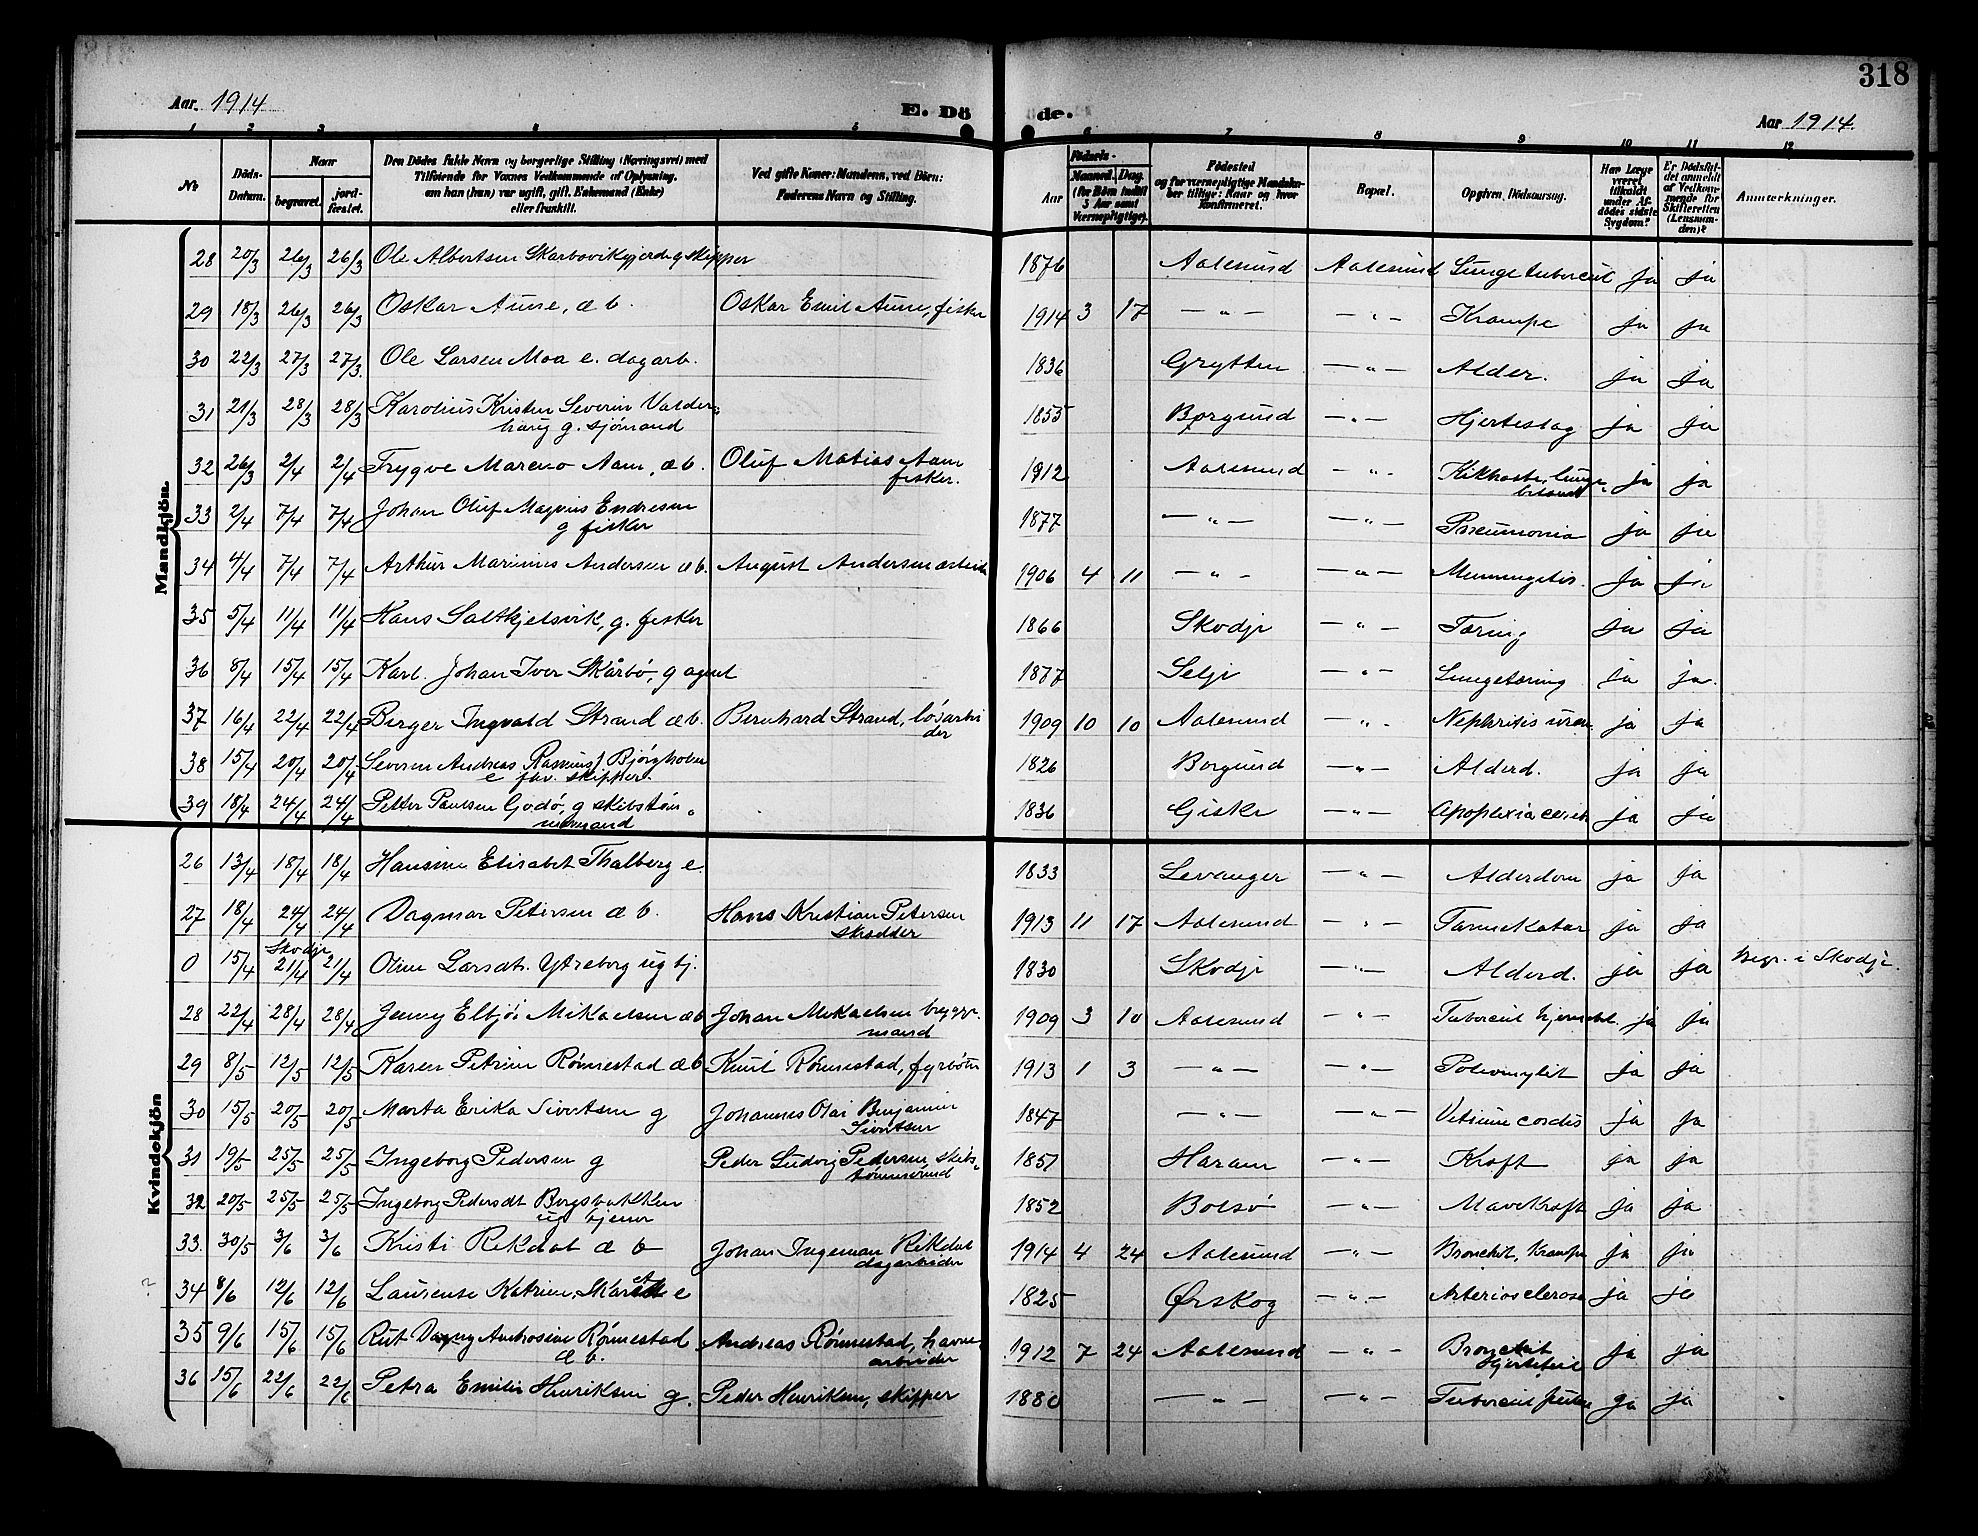 318
Aar. 1914
E. Dö
de.
Aar 1914.
1 2 3 4 5 6 7 8 9 10 11 12
No
Döds-
Datum.
Naar
begravet.
jord-
fæstet.
Den Dødes fulde Navn og borgerlige Stilling (Næringsvei) med
Tilføiende for Voxnes Vedkommende af Oplysning,
om han (hun) var ugift, gift, Enkemand (Enke)
eller fraskilt.
Ved gifte Koner: Mandens, ved Börn:
Faderens Navn og Stilling.
Aar
Fødsels-
Maaned. Dag.
(for Börn indtil
5 Aar samt
Værnepligtige).
Fødested
og for værnepligtige Mandskaber tillige: Naar og hvor
konfirmeret.
Bopæl.
Opgiven Dödsaarsag.
Har Læge
været
tilkaldt
under Afdödes sidste
Sygdom?
Er Dödsfaldet anmeldt
af Vedkommende for
Skifteretten
(Lensmanden)?
Anmærkninger.
Mandkjön.
28 20/3 26/3 26/3 Ole Albertsen Skarbøvikgjerde g skipper 1876 Aalesund Aalesund Lungetubercul ja ja
29 18/3 26/3 26/3 Oskar Aune, æ b. Oskar Emil Aune, fisker 1914 3 17 — " — — " — Krampe ja ja
30 22/3 27/3 27/3. Ole Larsen Moa e. dagarb. 1836 Grytten — " — Alder. ja ja
31 21/3 28/3 28/3 Karolius Kristen Severin Valder-
haug g. sjømand 1855 Borgund — " — Hjerteslag ja ja
32 26/3 2/4 2/4 Trygve Mareno Aam, æ b. Oluf Matias Aam
fisker. 1912 Aalesund — " — Kikhoste, lunge-
betænd ja ja
33 2/4 7/4 7/4 Johan Oluf Magnus Endresen
g fisker 1877 — " — — " — Pneumonia ja ja
34 4/4 7/4 7/4 Arthur Marinius Andersen æ b. August Andersen arbeid 1906 4 11 — " — — " — Menningitis. ja ja
35 5/4 11/4 11/4 Hans Saltkjelsvik, g. fisker 1866 Skodje — " — Tæring ja ja
36 8/4 15/4 15/4 Karl Johan Iver Skårbø, g agent 1877 Selje — " — Lungetæring ja ja.
37 16/4 22/4 22/4 Birger Ingvald Strand æ b. Bernhard Strand, løsarbei
der 1909 10 10 Aalesund — " — Nephritis uræm ja ja
38 15/4 20/4 20/4 Severin Andreas Rasmus. Bjørgholm
e fhv. skipper. 1826 Borgund — " — Alderd. ja ja
39 18/4 24/4 24/4 Petter Paulsen Godø, g skibstøm-
mermand 1836 Giske — " — Apoplexia cereb ja ja
Kvindekjön
26 13/4 18/4 18/4 Hansine Elisabet Thalberg e. 1833 Levanger — " — Alderdom ja ja
27 18/4 24/4 24/4 Dagmar Petersen æ b. Hans Kristian Petersen
skrædder 1913 11 17 Aalesund — " — Tarmekatar ja ja
0 15/4 Skodje
21/4 21/4 Oline Larsdt. Ytreborg ug tj. 1830 Skodje — " — Alderd. ja ja Begr. i Skodje.
28 22/4 28/4 28/4 Jenny Elbjør Mikaelsen æ b Johan Mikaelsen brygge-
mand 1909 3 10 Aalesund — " — Tubercul hjerneb. ja ja
29 8/5 12/5 12/5 Karen Petrine Rønnestad æ b Knut Rønnestad, fyrbøter 1913 1 3 — " — — " — Poliomyelit ja ja
30 15/5 20/5 20/5 Marta Erika Sivertsen g Johannes Olai Benjamin
Sivertsen 1847 — " — — " — Vitium cordis ja ja
31 19/5 25/5 25/5 Ingeborg Pedersen g Peder Ludvig Pedersen, skibs-
tømmermd 1857 Haram — " — Kræft ja ja
32 20/5 25/5 25/5 Ingeborg Pedersdt Bergsbakken
ug tjener 1852 Bolsø — " — Mavekræft ja ja
33. 30/5 3/6 3/6 Kristi Rekdal æ b Johan Ingeman Rekdal
dagarbeider 1914 4 24 Aalesund — " — Bronchit, Krampe ja ja
34 8/6 12/6 12/6 Laurense Katrine e 1825 Ørskog — " — Arteriosclerose ja ja
35 9/6 15/6 15/6 Rut Dagny Ambrosine Rønnestad
æ b. Andreas Rønnestad, havne-
arbeider 1912 7 24 Aalesund — " — Bronchit
Hjertefeil ja ja
36 15/6 22/6 22/6 Petra Emilie Henriksen g. Peder Henriksen, skipper 1880 — " — — " — Tubercul ja ja